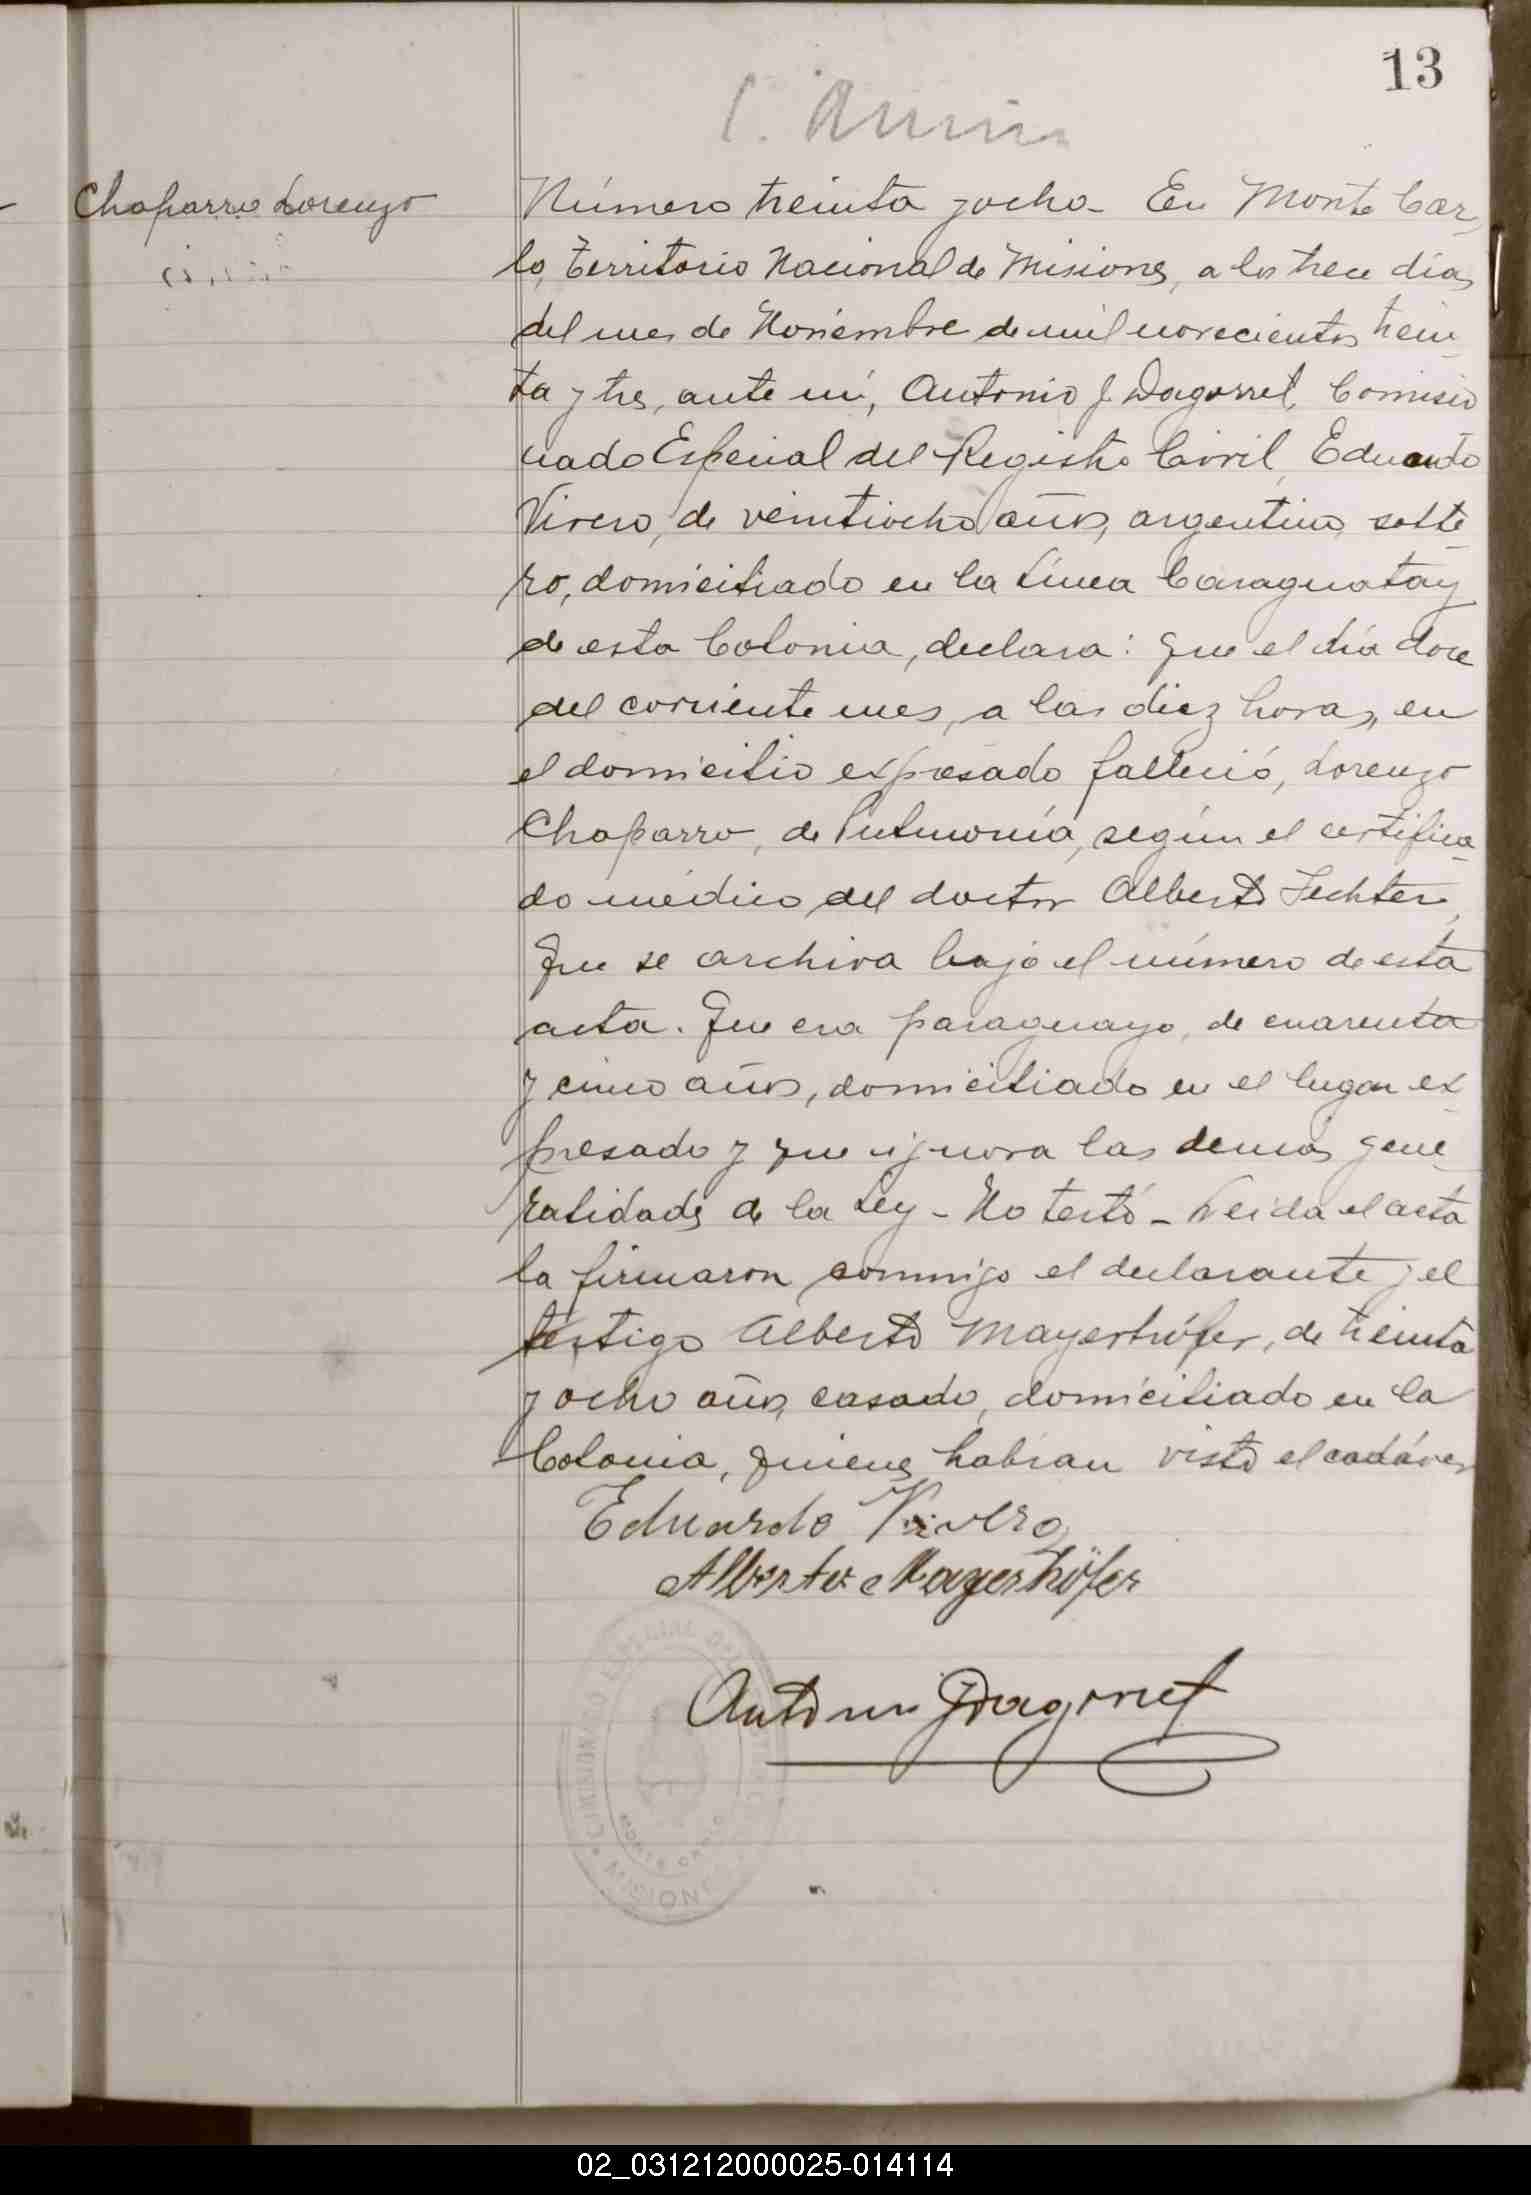 13
Chaparro Lorenzo
Número treinta y ocho - En Monte Car-
lo, Territorio Nacional de Misiones, a los trece días
del mes de Noviembre de mil novecientos trein-
ta y tres, ante mí, Antonio J Dagorret, Comisio
nado Especial del Registro Civil, Eduardo
Vivero, de veintiocho años, argentino, solte-
ro, domiciliado en la Línea Caraguatay
de esta Colonia, declara: Que el día doce
del corriente mes, a las diez horas, en
el domicilio expresado falleció, Lorenzo
Chaparro, de Pulmonía, según el certifica-
do médico del doctor Alberto Fechter,
que se archiva bajo el número de esta
acta. Que era paraguayo, de cuarenta
y cinco años, domiciliado en el lugar ex-
presado y que ignora las demás gene-
ralidades de la Ley - No testó - Leída el acta
la firmaron conmigo el declarante y el
testigo Alberto Mayerhöfer, de treinta
y ocho años, casado, domiciliado en la
Colonia, quienes habían visto el cadáver
Eduardo Vivero
Alberto Mayerhöfer
Antonio J Dagorret
COMISIONADO ESPECIAL DEL
MONTE CARLO
MISIONES
02_031212000025-014114